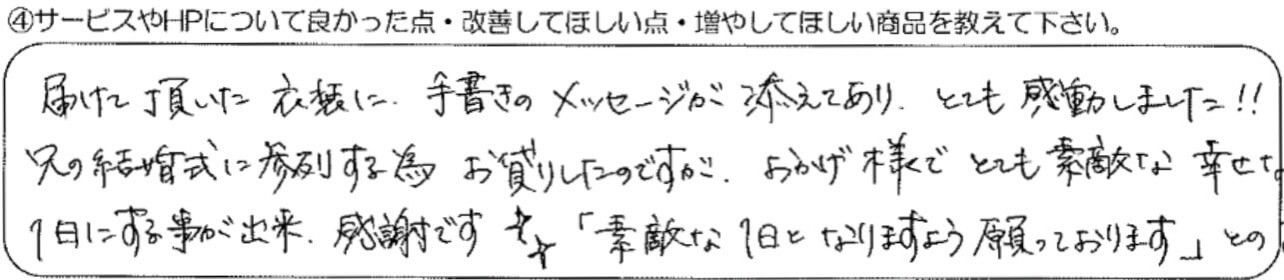 ④サービスやHPについて良かった点・改善してほしい点・増やしてほしい商品を教えて下さい。
届けて頂いた衣装に、手書きのメッセージが添えてあり、とても感動しました!!
兄の結婚式に参列する為 お貸りしたのですが、おかげ様でとても素敵な 幸せな
1日にする事が出来、感謝です 「素敵な1日となりますよう願っております」との